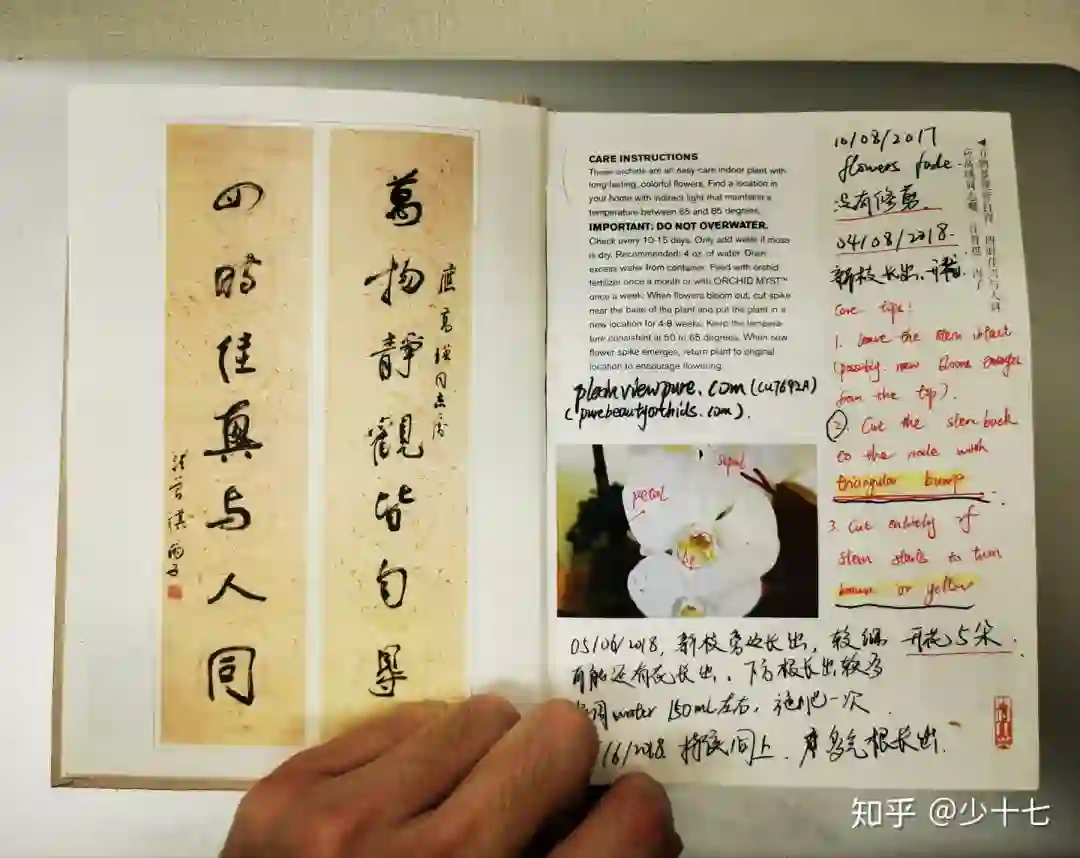 萬物静觀皆自得
四時佳興与人同
CARE INSTRUCTIONS
These orchids are an easy care indoor plant with
long-lasting, colorful flowers. Find a location in
your home with indirect light that maintains a
temperature between 65 and 85 degrees.
IMPORTANT: DO NOT OVERWATER.
Check every 10-15 days. Only add water if moss
is dry. Recommended: 4 oz. of water. Drain
excess water from container. Feed with orchid
fertilizer once a month or with ORCHID MYST™
once a week. When flowers bloom out, cut spike
near the base of the plant and put the plant in a
new location for 4-8 weeks. Keep the tempera-
ture consistent at 50 to 65 degrees. When new
flower spike emerges, return plant to original
location to encourage flowering.
(purebeautyorchids.com).
petal
sepal
lip
10/08/2017
flowers fade.
没有修剪.
04/08/2018.
新枝长出、开花.
Care tips:
1. Leave the stem intact
(possibly new blooms emerges
from the tip).
2. Cut the stem back
to the node with
triangular bump.
3. Cut entirely if
stem starts to turn
brown or yellow
05/06/2018, 新枝旁边长出, 较细 开花5朵.
可能还有花长出. 下方根长出较多
周water 150mL左右, 施肥一次.
/6/2018 同上. 根长出.
知乎 @少十七